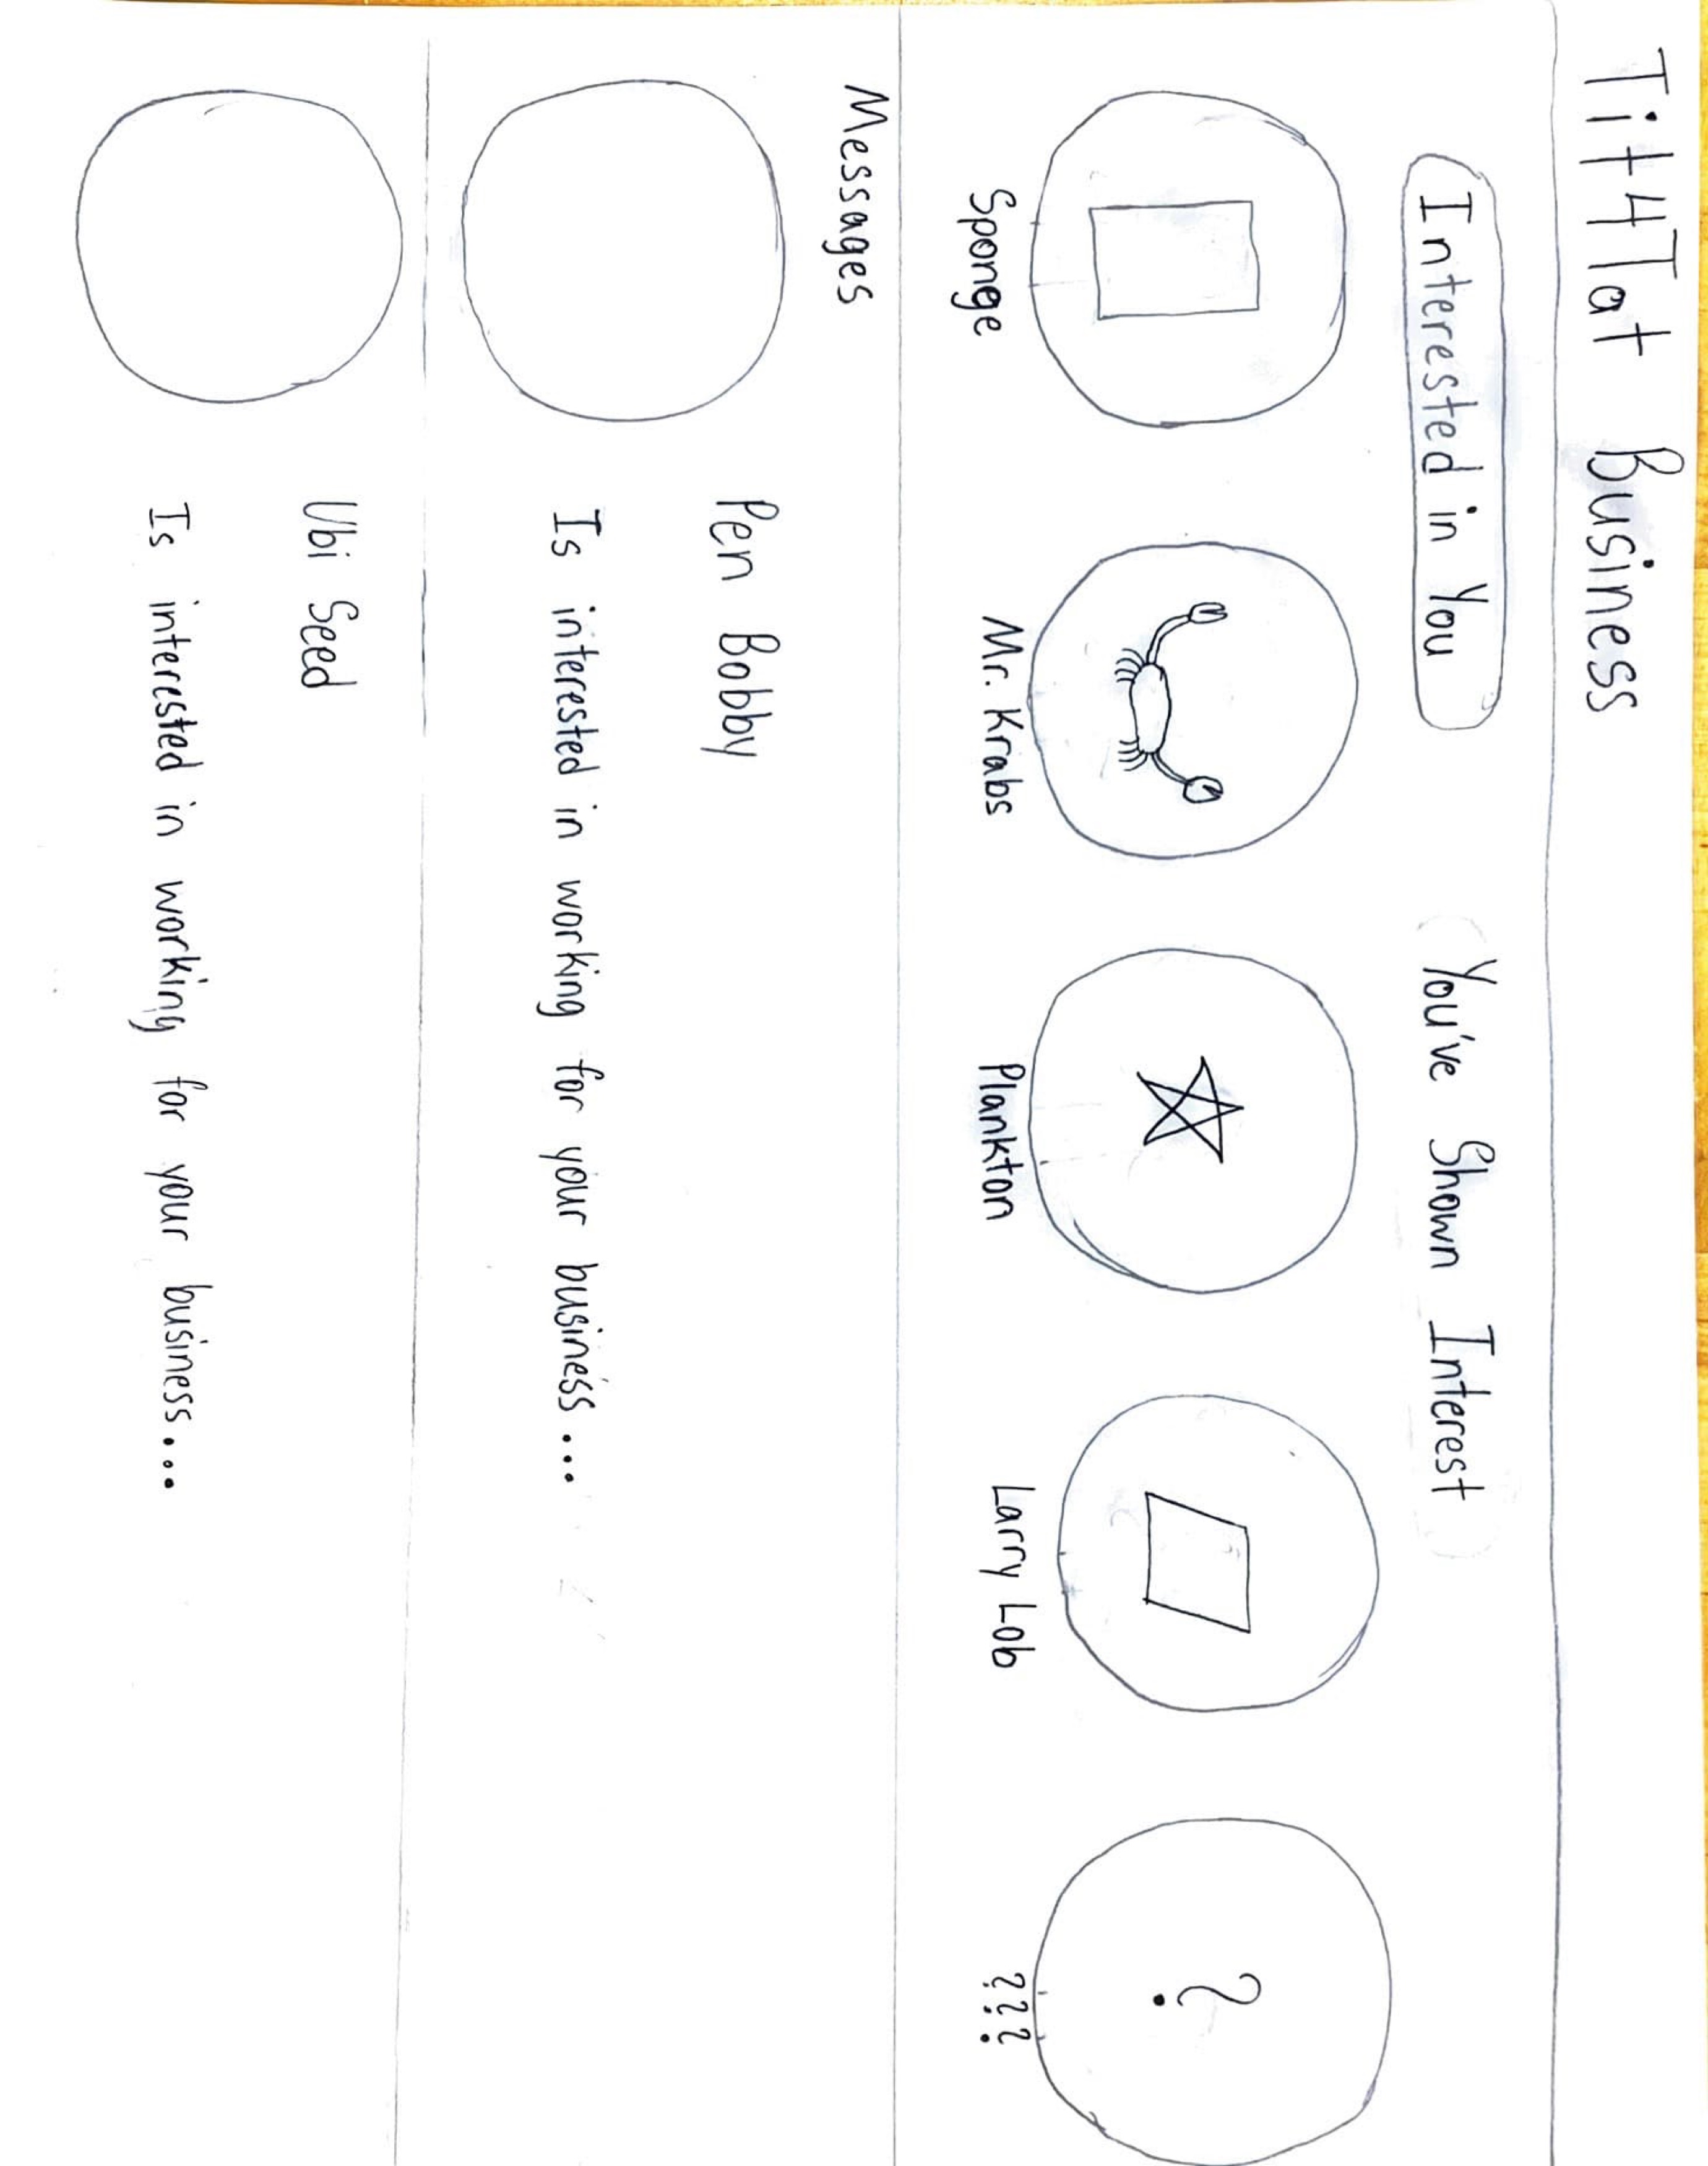 Tit4Tat Business
Interested in You
You've Shown Interest
Sponge
Mr. Krabs
Plankton
Larry Lob
?
???
Messages
Pen Bobby
Is interested in working for your business....
Ubi Seed
Is interested in working for your business....